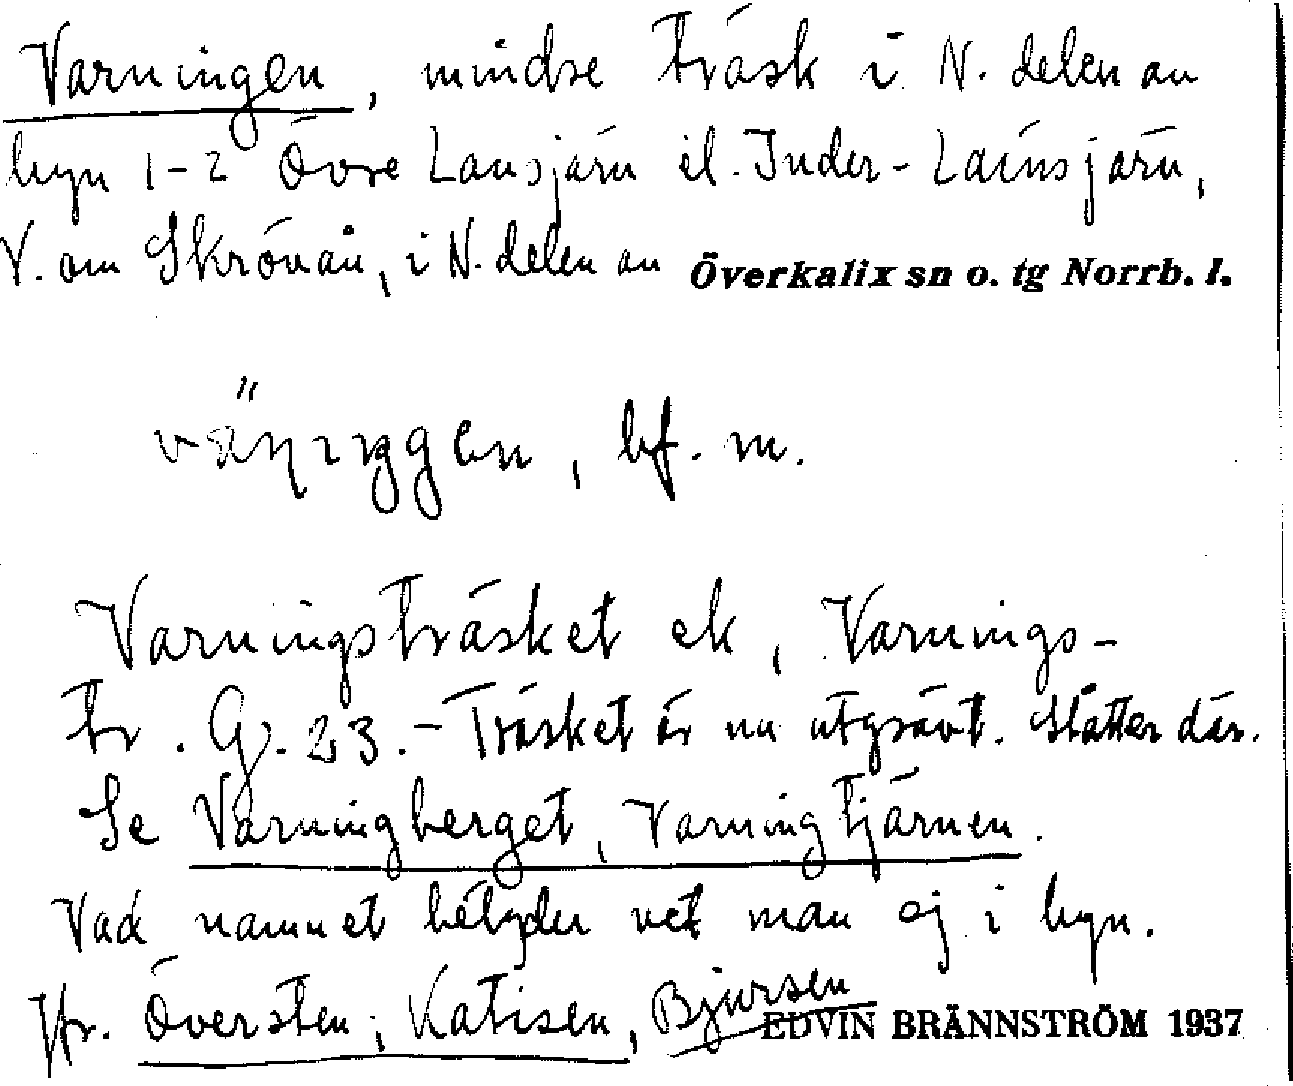 Varningen, mindre träsk i N. delen av
byn 1-2 Övre Lansjärv el. Inder-Lainsjärv,
V. om Skrövån, i N. delen av Överkalix sn o. tg Norrb. l.
bf. m.
Varningsträsket ek, Varnings-
tr. G. 23. – Träsket är nu utgrävt. Slåtter där.
Se Varningberget, Varningtjärnen.
Vad namnet betyder vet man ej i byn.
Jfr. Översten, Katisen, Bjursen
EDVIN BRÄNNSTRÖM 1937